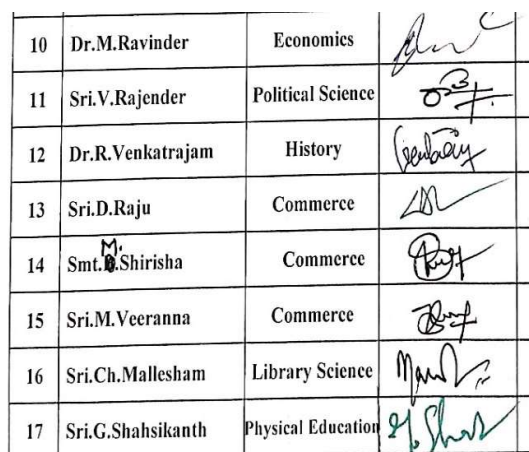 10 Dr.M.Ravinder Economics
11 Sri.V.Rajender Political Science
12 Dr.R.Venkatrajam History
13 Sri.D.Raju Commerce
14 Smt. M.Shirisha Commerce
15 Sri.M.Veeranna Commerce
16 Sri.Ch.Mallesham Library Science
17 Sri.G.Shahsikanth Physical Education